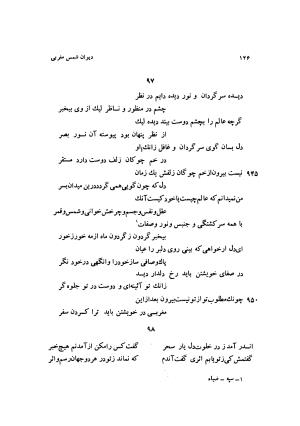 ۱۲۶
دیوان شمس مغربی
۹۷
دیده سرگردان و نور دیده دایم در نظر
چشم در منظور و ناظر لیک از وی بیخبر
گرچه عالم را بچشم دوست بیند دیده لیک
از نظر پنهان بود پیوسته آن نور بصر
دل بسان گوی سرگردان و غافل زانک او
در خم چوگان زلف دوست دارد مستقر
۹۴۵ نیست بیرون از خم چوگان زلفش یک زمان
دل که چون گویی همی گردد درین میدان بسر
من نمیدانم که عالم چیست یا خود کیست آنک
عقل و نفس و جسم و چرخش خوانی و شمس و قمر
با همه سرگشتگی و جنبش و نور وصفات۱
بیخبر گردون ز گردون ماه ازمه خور زخور
ای دل ار خواهی که بینی روی دلبر را عیان
پاک و صافی ساز خود را و انگهی در خود نگر
در صفای خویشتن باید رخ دلدار دید
زانک تو آئینه‌ای و دوست در تو جلوه گر
۹۵۰ چونک مطلوب تو از تو نیست بیرون بعد ازاین
مغربی در خویشتن باید ترا کردن سفر
۹۸
اندر آمد ز در خلوت دل یار سحر
گفت کس را مکن از آمدنم هیچ خبر
گفتمش کی ز تو یابم اثری گفت آندم
که نماند ز تو در هر دو جهان رسم و اثر
۱- سپه - ضیاء